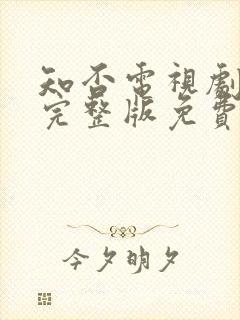 知否電視劇
完整版免費
今夕明夕